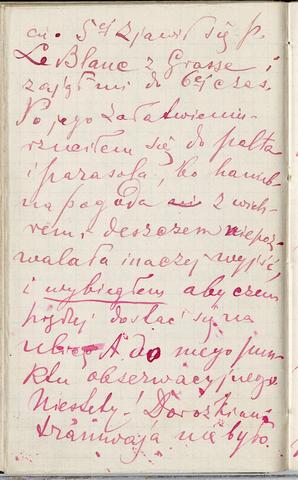 ci. 5ej zjawił się p.
Le Blanc z Grasse i
zajął mi do 6ej czas.
Po jego załatwieniu
rzuciłem się do palta
i parasola, bo haniebna
pogoda z wichrem
i deszczem niepozwalała
inaczej wyjść,
i wybiegłem aby czem
prędzej dostać się na
do mego punktu
obserwacyjnego.
Niestety! Dorożki ani
tramwaja nie było.